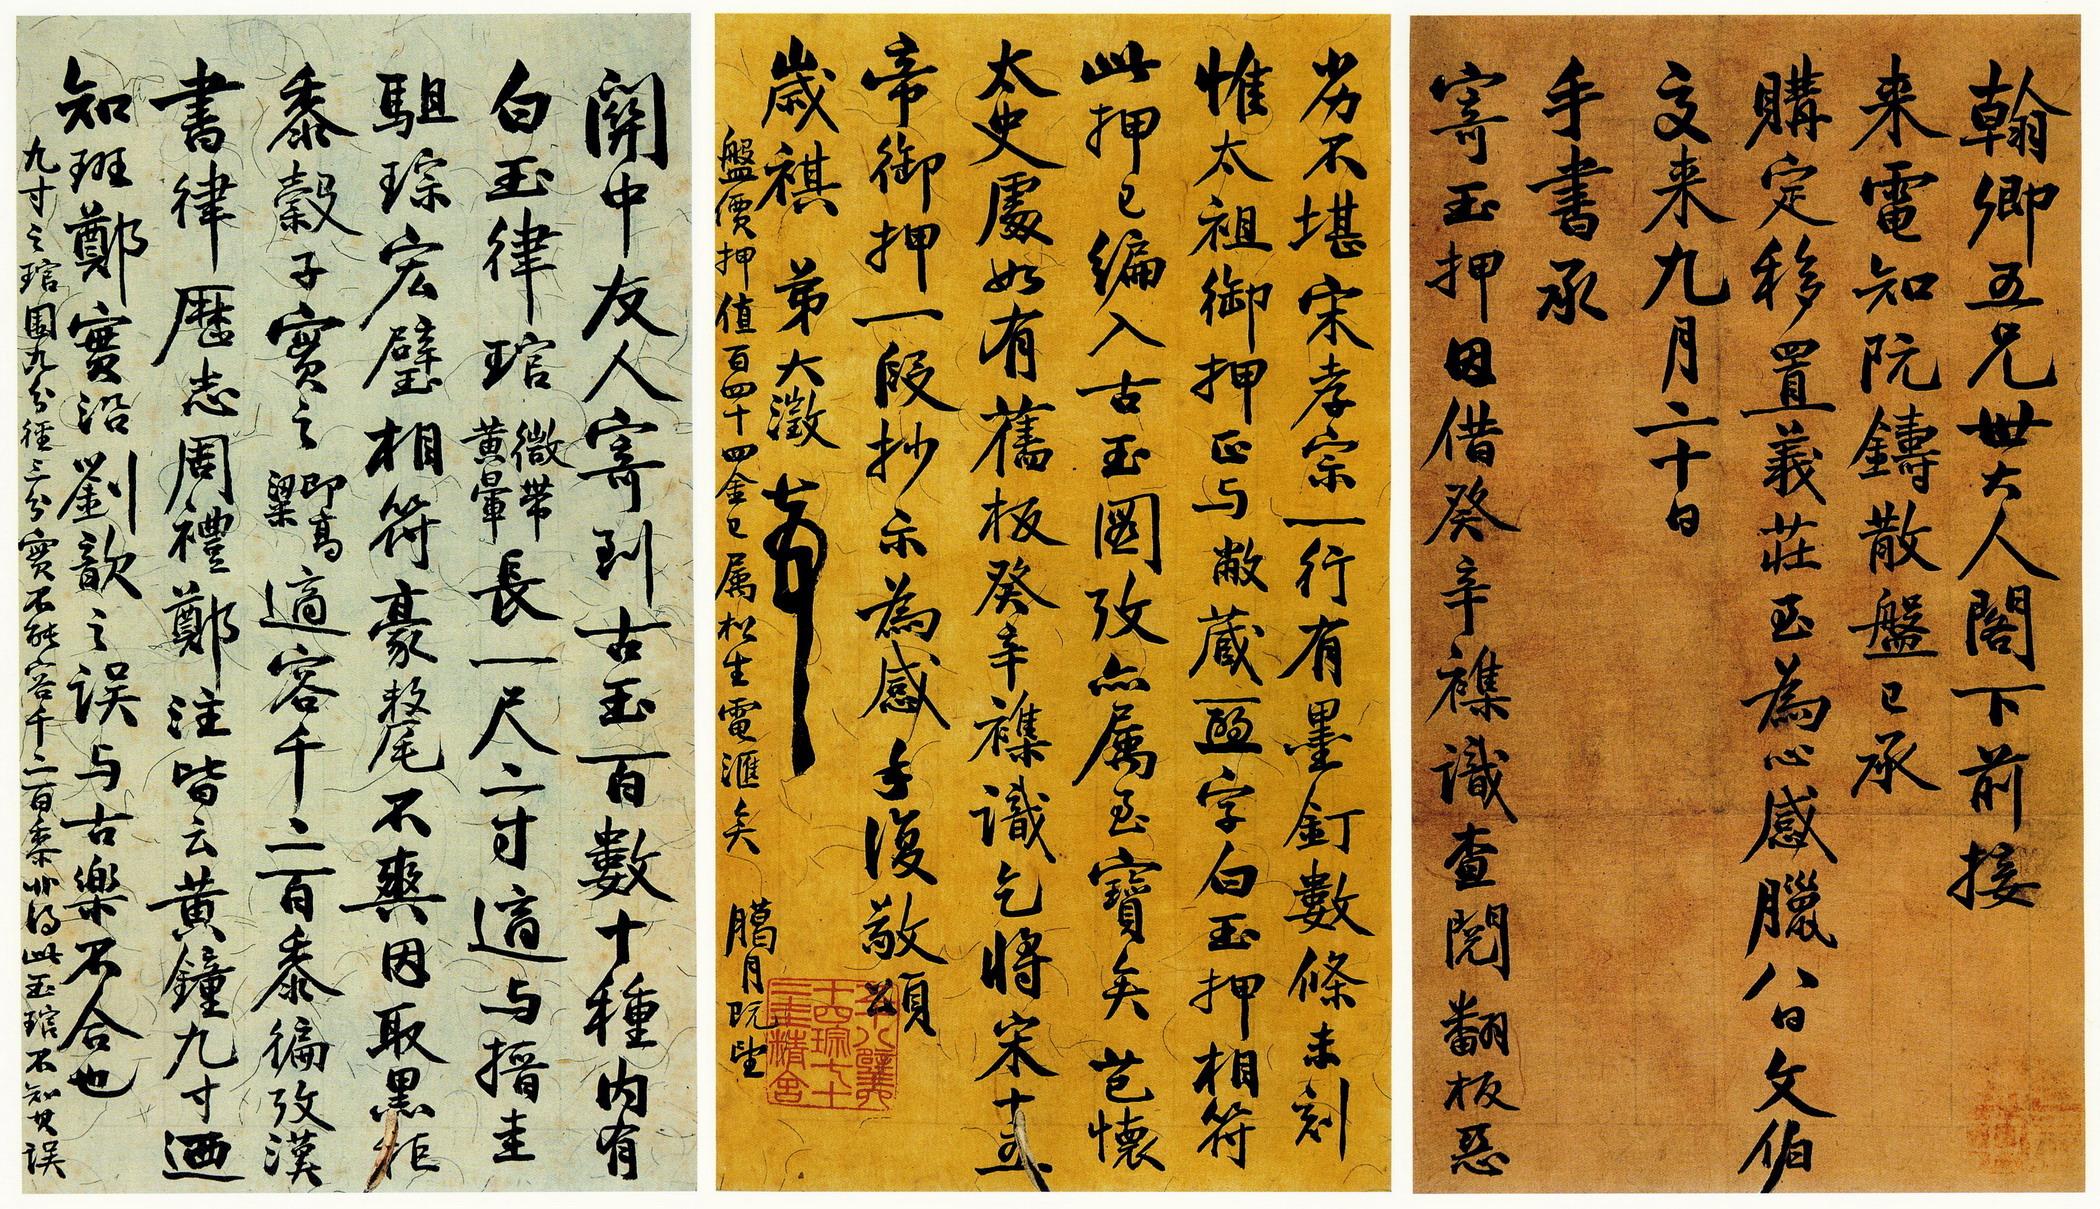 翰卿五兄世大人閣下前接
来電知阮鑄散盤已承
購定移置義莊至為心感臘八日文伯
交来九月二十日
手書承
寄玉押因借癸辛襍識查閱翻板惡
劣不堪宋孝宗一行有墨釘數條未刻
惟太祖御押正与敝蔵一𠕋字白玉押相符
此押已編入古玉圖攷亦属至寶矣芑懷
太史處如有舊板癸辛襍識乞將宋十五
帝御押一段抄示為感手復敬頌
歲祺 弟大澂頓首
盤價押值百四十四金已属松生電滙矣 臈月既望
五十八璧六十四琮七十二圭精舍
關中友人寄到古玉百數十種内有
白玉律琯微帶黄暈長一尺二寸適与搢圭
駔琮宏璧相符豪𣯛不爽因取黑秬
黍穀子實之即髙粱適容千二百黍徧攷漢
書律歴志周禮鄭注皆云黄鐘九寸迺
知班鄭實沿劉歆之誤与古樂不合也
九寸之琯圍九分徑三分實不能容千二百黍非得此玉琯不知其誤